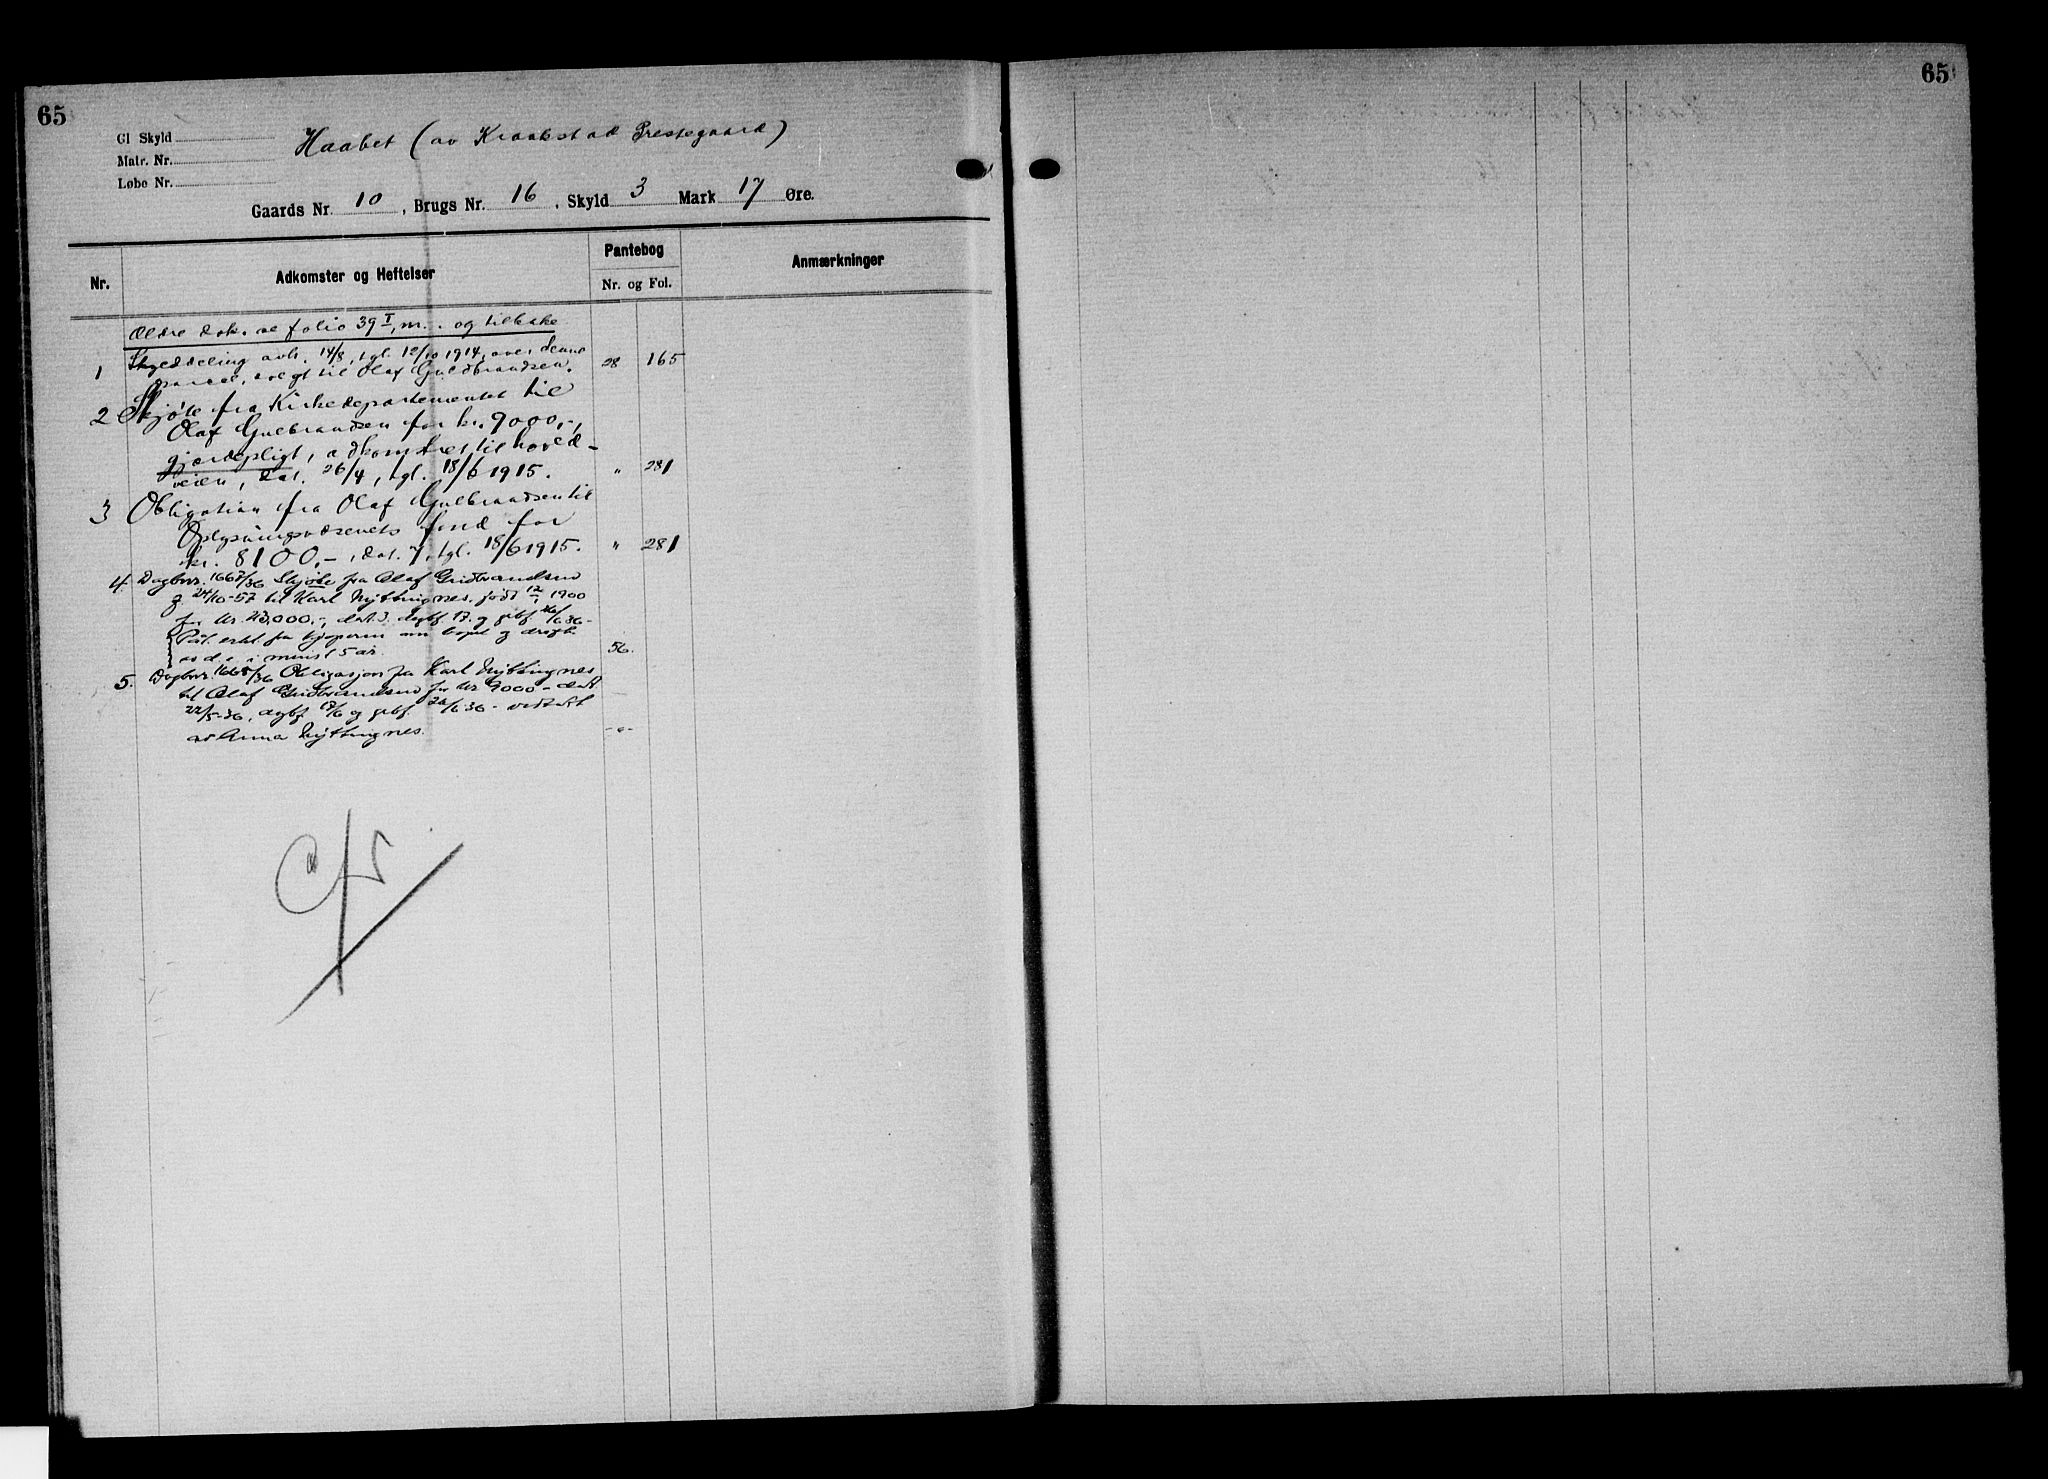 65
65
Gl Skyld
Matr. Nr.
Løbe Nr.
Haabet (av Kraakstad Prestegaard)
Gaards Nr. 10, Brugs Nr. 16, Skyld 3 Mark 17 Øre.
Nr. Adkomster og Heftelser Pantebog Anmærkninger
Nr. og Fol.
Ældre dok. se folio 39 I, m. og tilbake
1 Skylddeling avh. 14/8, tgl. 12/10 1914, over denne
parcel, solgt til Olaf Guldbrandsen. 28 165
2 Skjøte fra Kirkedepartementet til
Olaf Gulbrandsen for kr. 9000,-,
gjerdepligt, adkomstret til hoved-
veien, dat. 26/4, tgl. 18/6 1915. " 281
3 Obligation fra Olaf Gulbrandsen til
Oplysningsvæsenets fond for
kr. 8100,-, dat. , tgl. 18/6 1915. " 281
4. Dagbnr. 1667/36 Skjøte fra Olaf Guldbrandsen
til Karl Nyttingnes, født 1900
for kr. 23,000,-, dat. d. dagbf. 17. og gbf. 26/6 36-
fra kjøperen om bopel og drift
i minst 5 år. 56.
5. Dagbnr. 1668/36 Obligasjon fra Karl Nyttingnes
til Olaf Guldbrandsen for kr 9000 - dat.
22/5-36, dagbf. 17/6 og gbf. 26/6 36 - vedtatt
av Anna Nyttingnes. -"-